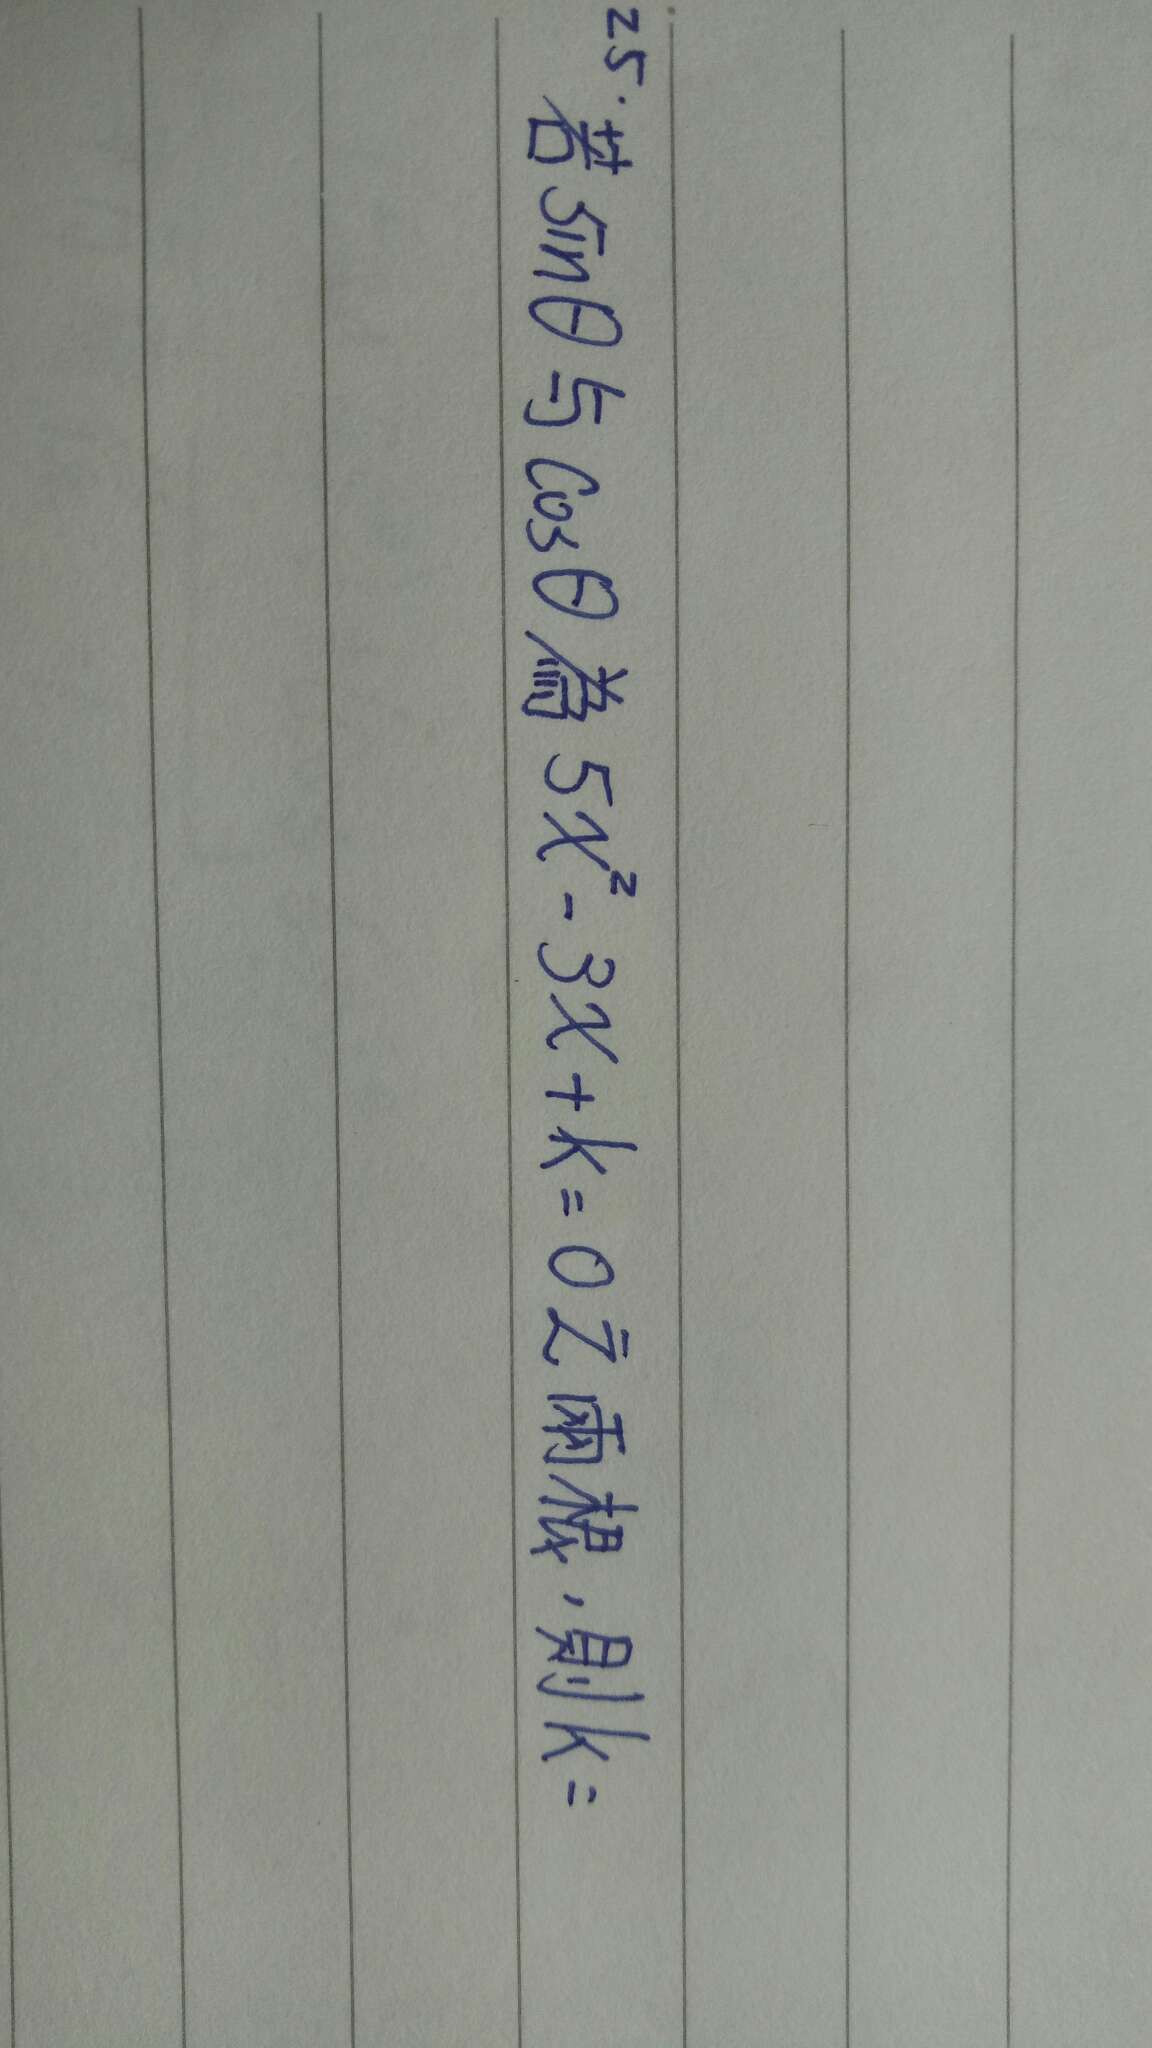 25. 若 sinθ 与 cosθ 為 5x² - 3x + k = 0 之兩根, 則 k =